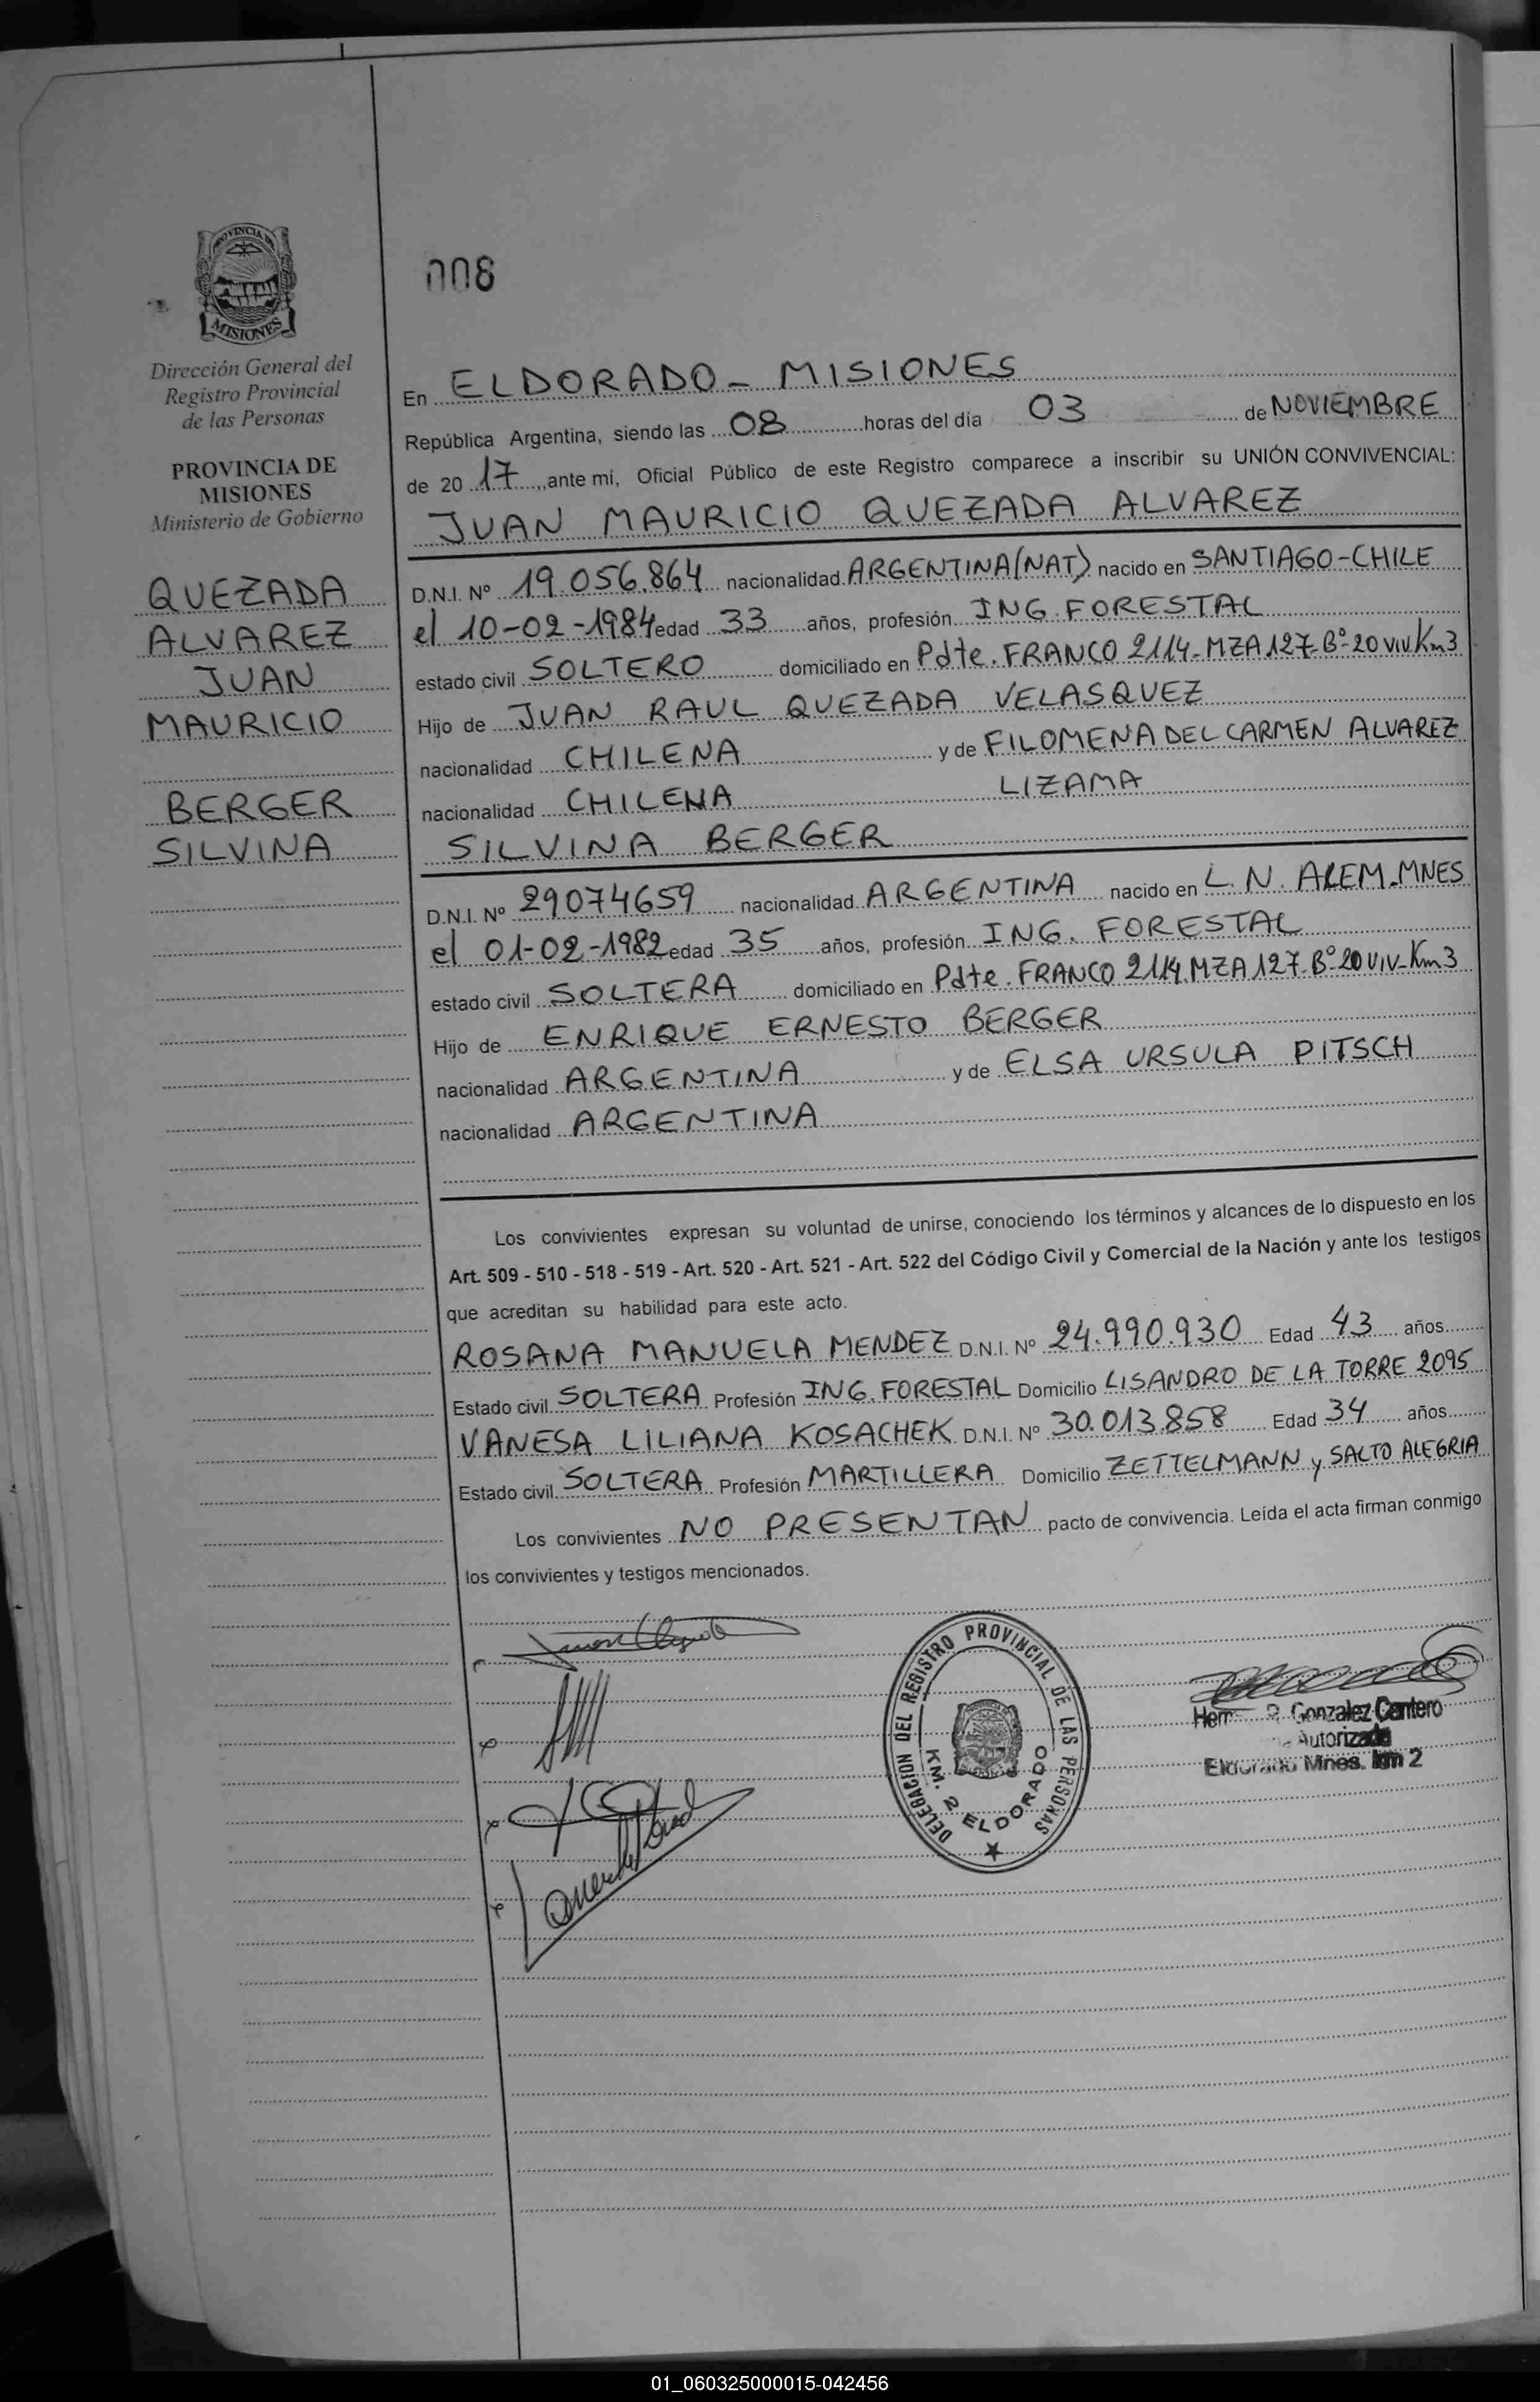 PROVINCIA DE
MISIONES
Dirección General del
Registro Provincial
de las Personas
PROVINCIA DE
MISIONES
Ministerio de Gobierno
QUEZADA
ALVAREZ
JUAN
MAURICIO
BERGER
SILVINA
008
En ELDORADO - MISIONES
República Argentina, siendo las 08 horas del día 03 de NOVIEMBRE
de 20 17, ante mí, Oficial Público de este Registro comparece a inscribir su UNIÓN CONVIVENCIAL:
JUAN MAURICIO QUEZADA ALVAREZ
D.N.I. Nº 19.056.864 nacionalidad ARGENTINA (NAT) nacido en SANTIAGO-CHILE
el 10-02-1984 edad 33 años, profesión ING. FORESTAL
estado civil SOLTERO domiciliado en Pdte. FRANCO 2114-MZA 127-Bº-20 VIV Km3
Hijo de JUAN RAUL QUEZADA VELASQUEZ
nacionalidad CHILENA y de FILOMENA DEL CARMEN ALVAREZ
nacionalidad CHILENA LIZAMA
SILVINA BERGER
D.N.I. Nº 29074659 nacionalidad ARGENTINA nacido en L. N. ALEM-MNES
el 01-02-1982 edad 35 años, profesión ING. FORESTAL
estado civil SOLTERA domiciliado en Pdte. FRANCO 2114 MZA 127-Bº-20 VIV-Km3
Hijo de ENRIQUE ERNESTO BERGER
nacionalidad ARGENTINA y de ELSA URSULA PITSCH
nacionalidad ARGENTINA
Los convivientes expresan su voluntad de unirse, conociendo los términos y alcances de lo dispuesto en los
Art. 509 - 510 - 518 - 519 - Art. 520 - Art. 521 - Art. 522 del Código Civil y Comercial de la Nación y ante los testigos
que acreditan su habilidad para este acto.
ROSANA MANUELA MENDEZ D.N.I. Nº 24.990.930 Edad 43 años
Estado civil SOLTERA Profesión ING. FORESTAL Domicilio LISANDRO DE LA TORRE 2095
VANESA LILIANA KOSACHEK D.N.I. Nº 30.013.858 Edad 34 años
Estado civil SOLTERA Profesión MARTILLERA Domicilio ZETTELMANN y SALTO ALEGRIA
Los convivientes NO PRESENTAN pacto de convivencia. Leída el acta firman conmigo
los convivientes y testigos mencionados.
DELEGACION DEL REGISTRO PROVINCIAL DE LAS PERSONAS
KM. 2 ELDORADO
Gonzalez Cantero
Autorizada
Eldorado Mnes. km 2
01_060325000015-042456